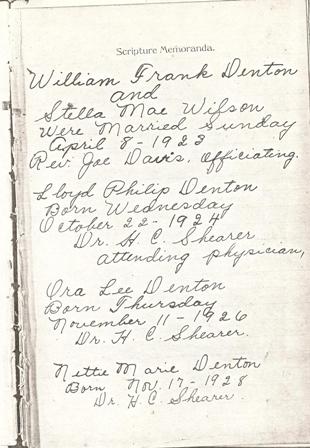 Scripture Memoranda.
William Frank Denton
and
Stella Mae Wilson
Were Married Sunday
April 8-1923
Rev. Joe Davis, officiating.
Lloyd Philip Denton
Born Wednesday
October 22-1924
Dr. H. C. Shearer
attending physician,
Ora Lee Denton
Born Thursday
November 11-1926
Dr. H. C. Shearer.
Nettie Marie Denton
Born Nov. 17-1928
Dr. H. C. Shearer.